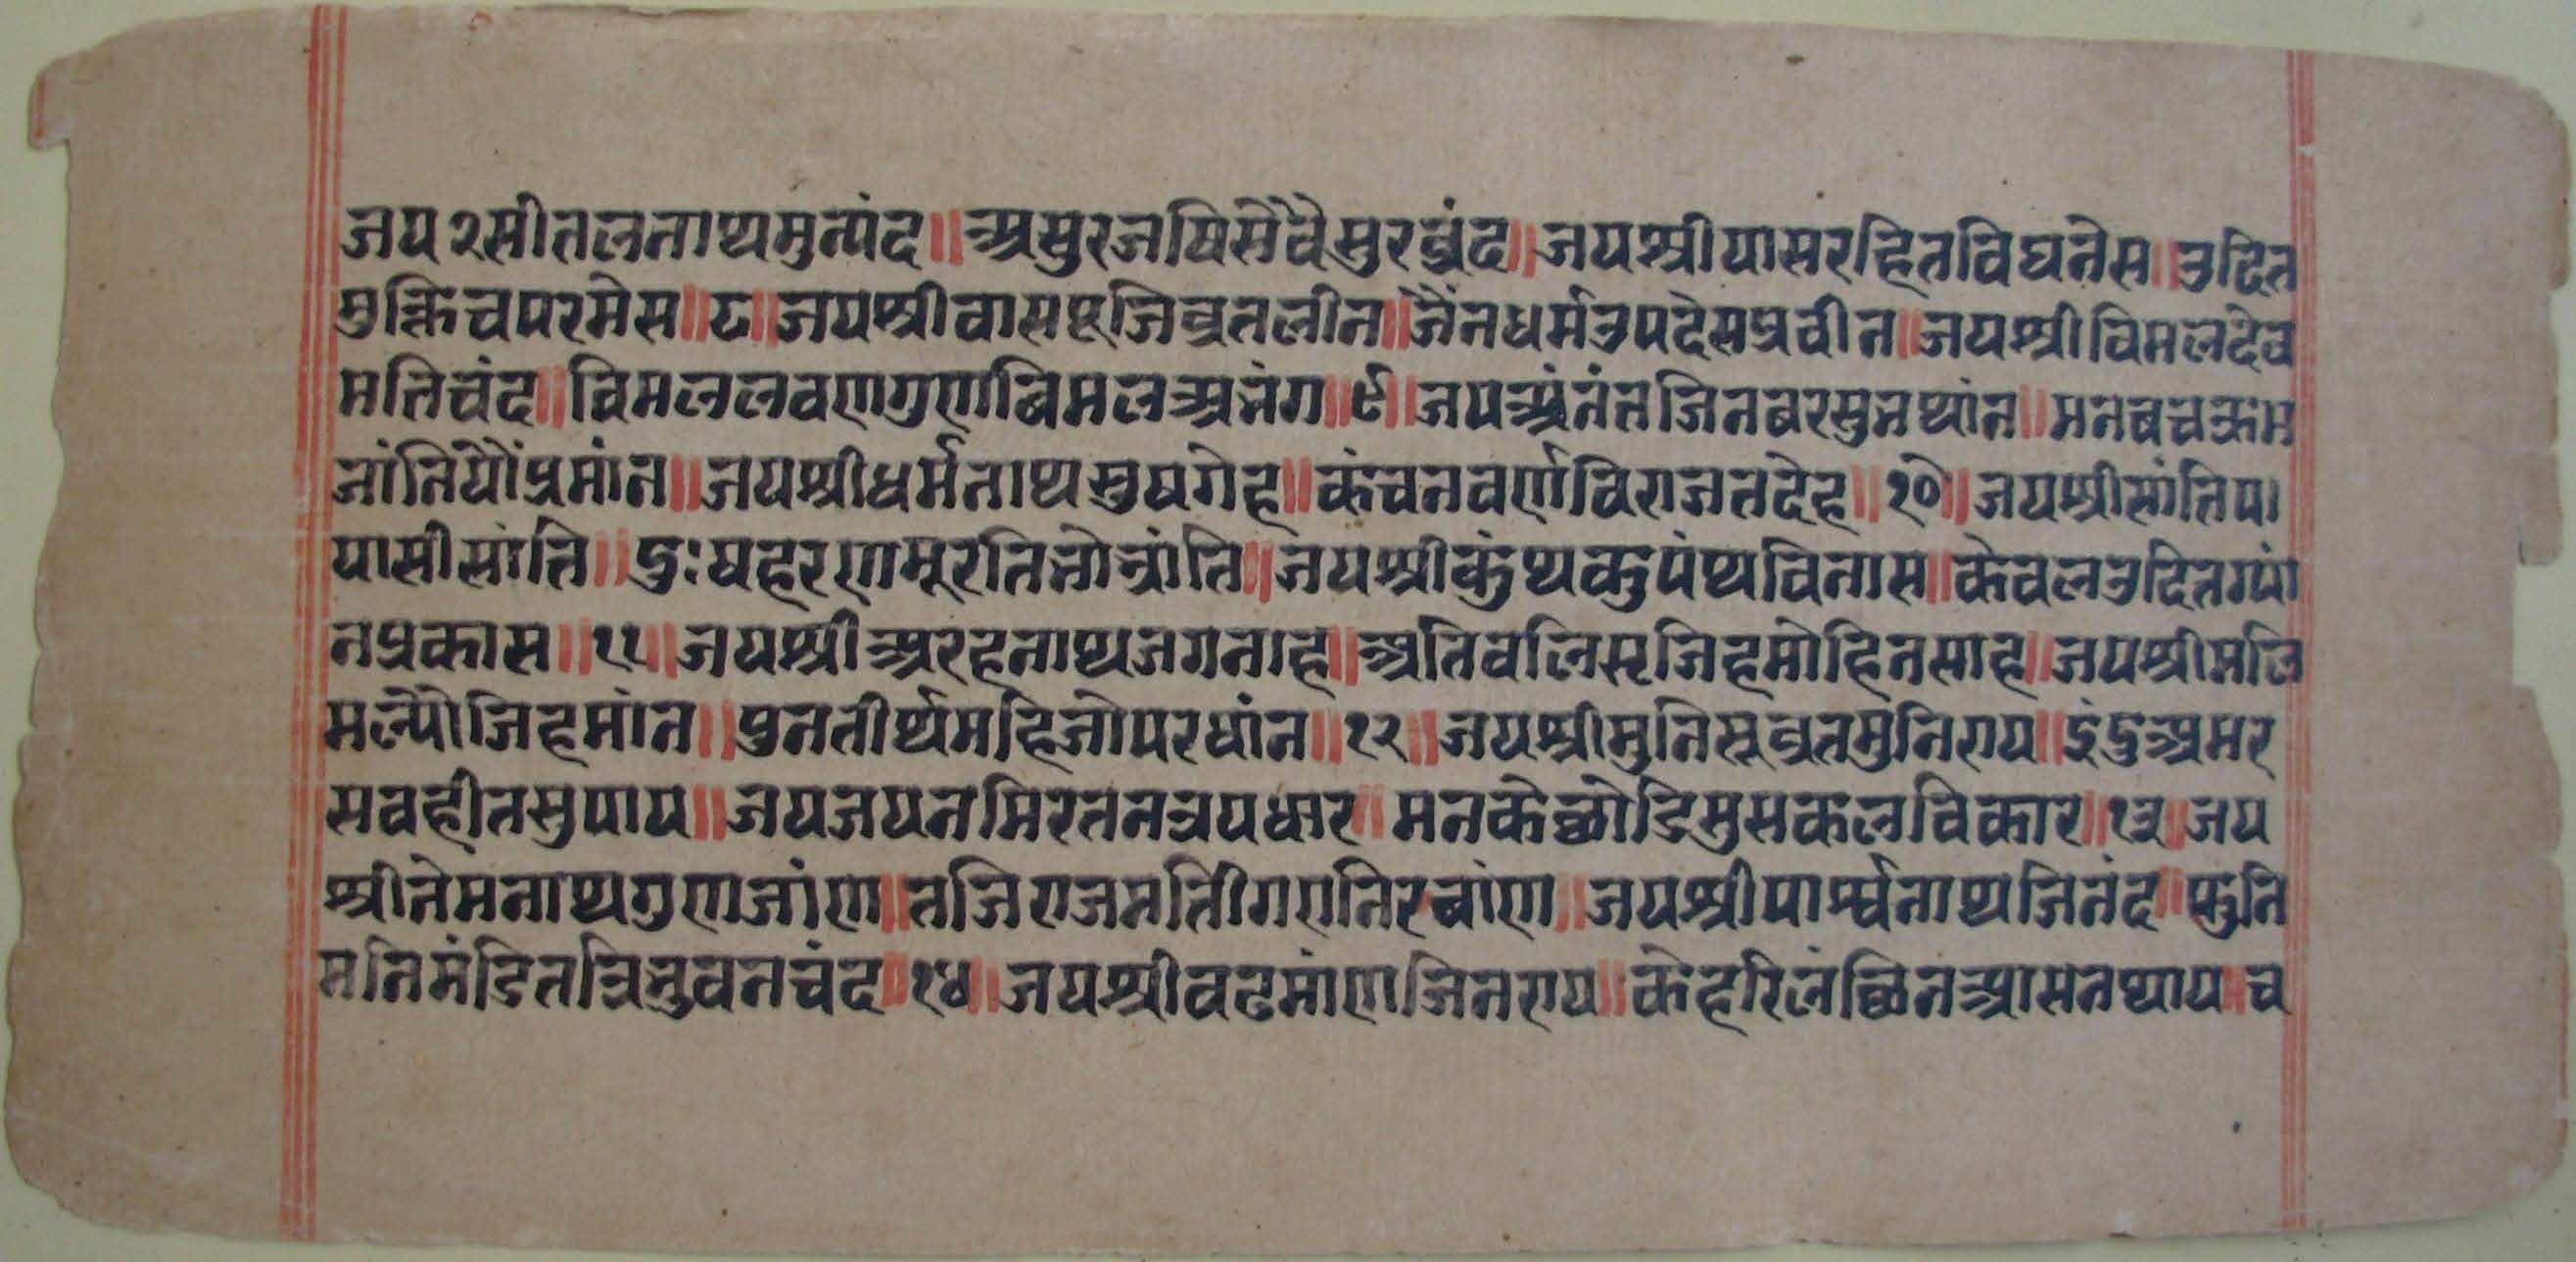 जय२सीतलनाथमुन्यंद॥असुरजयिसेवैसुरव्रंद॥जयश्रीयासरहितविघनेस॥उदित
मुक्तिचपरमेस॥८॥जयश्रीवासपूजिव्रतलीन॥जैनधर्मउपदेसप्रवीन॥जयश्रीविमलदेव
मतिचंद॥विमललवणगुणबिमलअनंग॥९॥जयअनंतजिनबरसुनथांन॥मनबचक्रम
जांनियौंप्रमांन॥जयश्रीधर्मनाथसुषगेह॥कंचनवर्णविराजतदेह॥१०॥जयश्रीसांतिप।
यासीसांति॥दुःषहरणमूरतिनोभ्रांति॥जयश्रीकुंथकुपंथविनास॥केवलउदितग्यां
नप्रकास॥११॥जयश्रीअरहनाथजगनाह॥अतिवलिसृजिहमोहिनसाह॥जयश्रीमलि
मल्यौजिहमांन॥पुनतीर्थमहिजोपरधांन॥१२॥जयश्रीमुनिसूव्रतमुनिराय॥इंदुअमर
सवहीनसुपाय॥जयजयनमिरतनत्रयधार॥मनकेछोडिमुसकलविकार॥१३॥जय
श्रीनेमनाथगुणजांण॥तजिराजमतीगएनिरबांण॥जयश्रीपार्श्वनाथजिनंद॥फुनि
मनिमंडितत्रिभुवनचंद॥१४॥जयश्रीवढमांणजिनराय॥केहरिलंछिनआसनथाय॥च